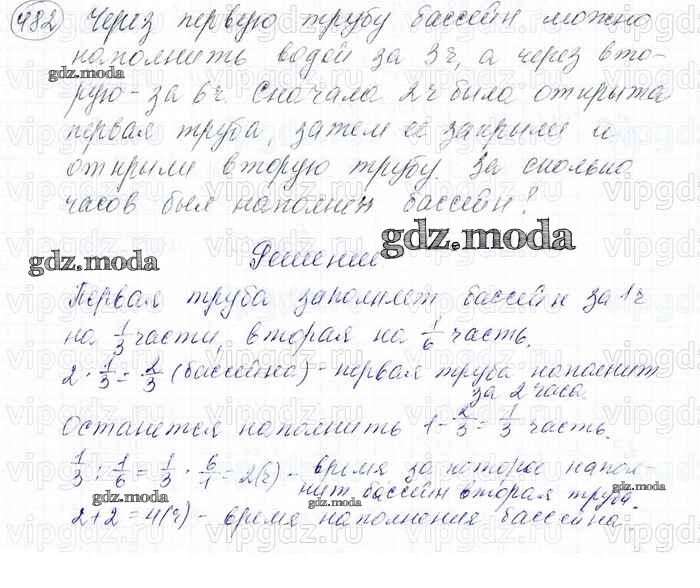 482 Через первую трубу бассейн можно
наполнить водой за 3ч, а через вто-
gdz.moda
рую - за 6ч. Сначала 2ч была открыта
первая труба, затем её закрыли и
открыли вторую трубу. За сколько
часов был наполнен бассейн?
gdz.moda
gdz.moda
Решение
Первая труба заполняет бассейн за 1ч
на 1/3 части, вторая на 1/6 часть.
2 · 1/3 = 2/3 (бассейна) - первая труба наполнит
за 2 часа.
Останется наполнить 1 - 2/3 = 1/3 часть.
1/3 : 1/6 = 1/3 · 6/1 = 2(ч) - время за которое напол-
нит бассейн вторая труба.
gdz.moda
gdz.moda
2+2=4(ч) - время наполнения бассейна.
gdz.moda
vipgdz.ru